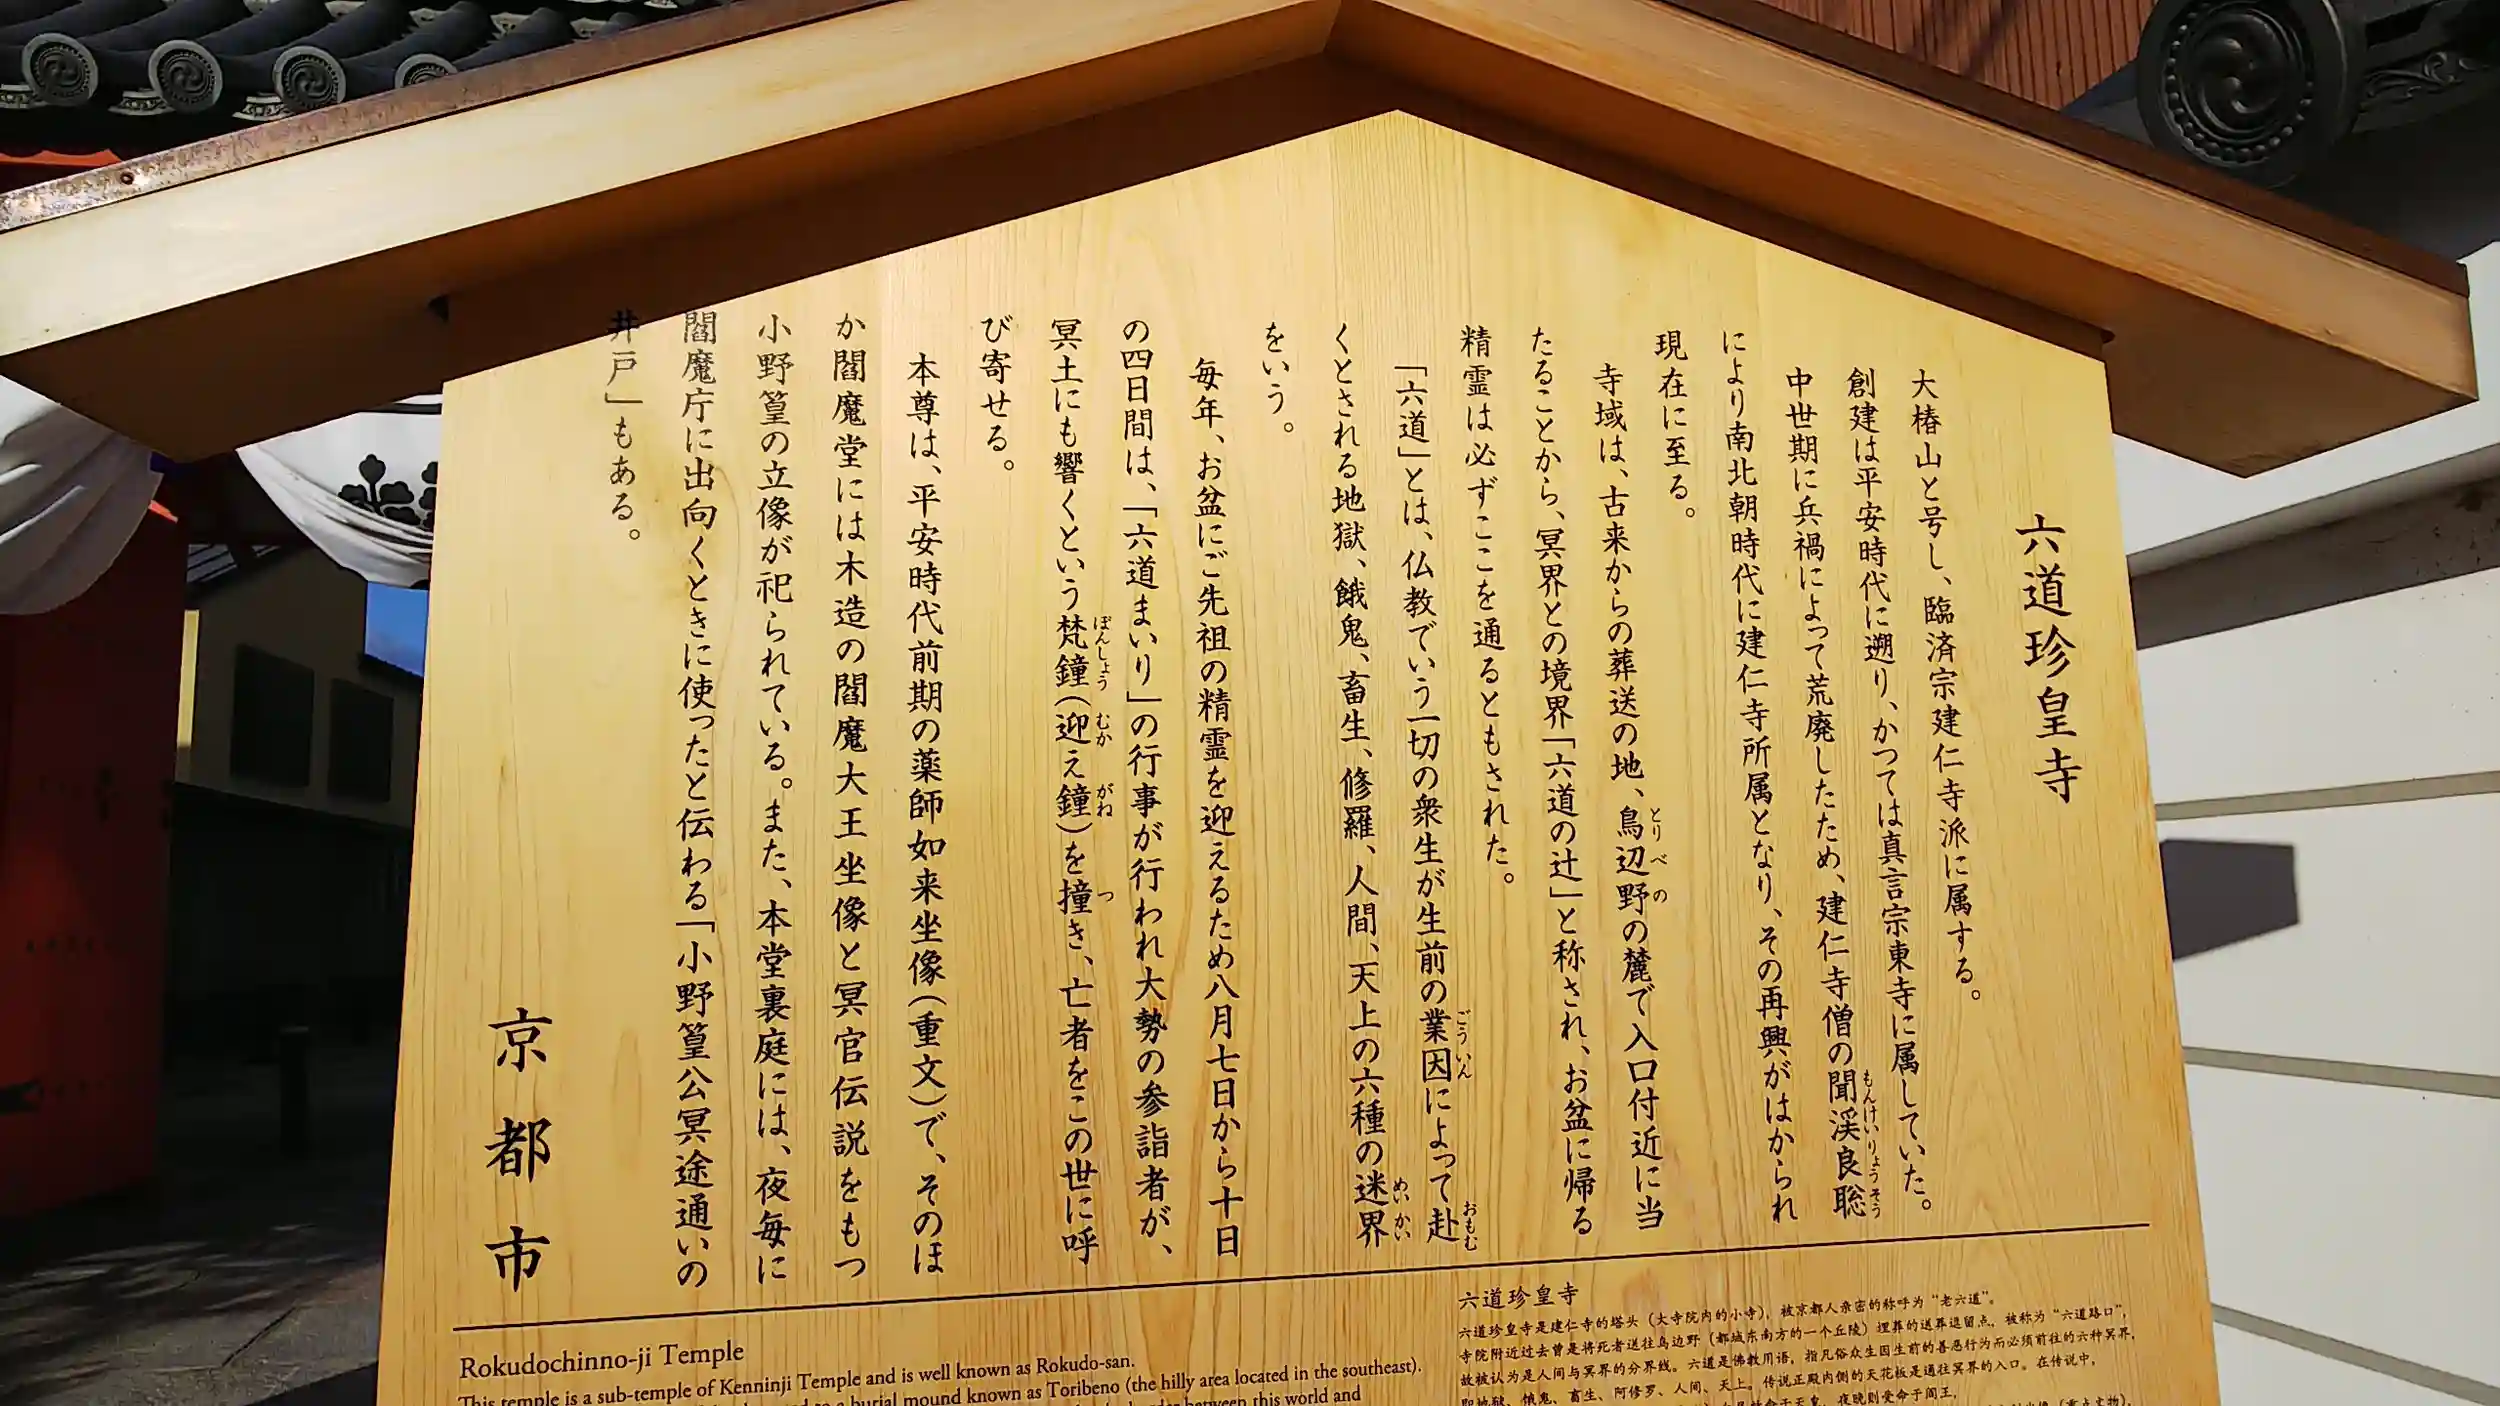 六道珍皇寺
大椿山と号し、臨済宗建仁寺派に属する。
創建は平安時代に遡り、かつては真言宗東寺に属していた。
中世期に兵禍によって荒廃したため、建仁寺僧の聞渓良聡
もんけいりょうそう
により南北朝時代に建仁寺所属となり、その再興がはかられ
現在に至る。
寺域は、古来からの葬送の地、鳥辺野の麓で入口付近に当
とりべの
たることから、冥界との境界「六道の辻」と称され、お盆に帰る
精霊は必ずここを通るともされた。
「六道」とは、仏教でいう一切の衆生が生前の業因によって赴
ごういん
おもむ
くとされる地獄、餓鬼、畜生、修羅、人間、天上の六種の迷界
めいかい
をいう。
毎年、お盆にご先祖の精霊を迎えるため八月七日から十日
の四日間は、「六道まいり」の行事が行われ大勢の参詣者が、
冥土にも響くという梵鐘(迎え鐘)を撞き、亡者をこの世に呼
ぼんしょう
むか
がね
つ
び寄せる。
本尊は、平安時代前期の薬師如来坐像(重文)で、そのほ
か閻魔堂には木造の閻魔大王坐像と冥官伝説をもつ
小野篁の立像が祀られている。また、本堂裏庭には、夜毎に
閻魔庁に出向くときに使ったと伝わる「小野篁公冥途通いの
井戸」もある。
京都市
Rokudochinno-ji Temple
This temple is a sub-temple of Kenninji Temple and is well known as Rokudo-san.
to a burial mound known as Toribeno (the hilly area located in the southeast).
between this world and
六道珍皇寺
六道珍皇寺是建仁寺的塔头（大寺院内的小寺），被京都人亲密的称呼为“老六道”。
寺院附近过去曾是将死者送往鸟边野（都城东南方的一个丘陵）埋葬的送葬逗留点，被称为“六道路口”，
故被认为是人间与冥界的分界线。六道是佛教用语，指凡俗众生因生前的善恶行为而必须前往的六种冥界，
即地狱、饿鬼、畜生、阿修罗、人间、天上。传说正殿内侧的天花板是通往冥界的入口。在传说中，
夜晚则受命于阎王，